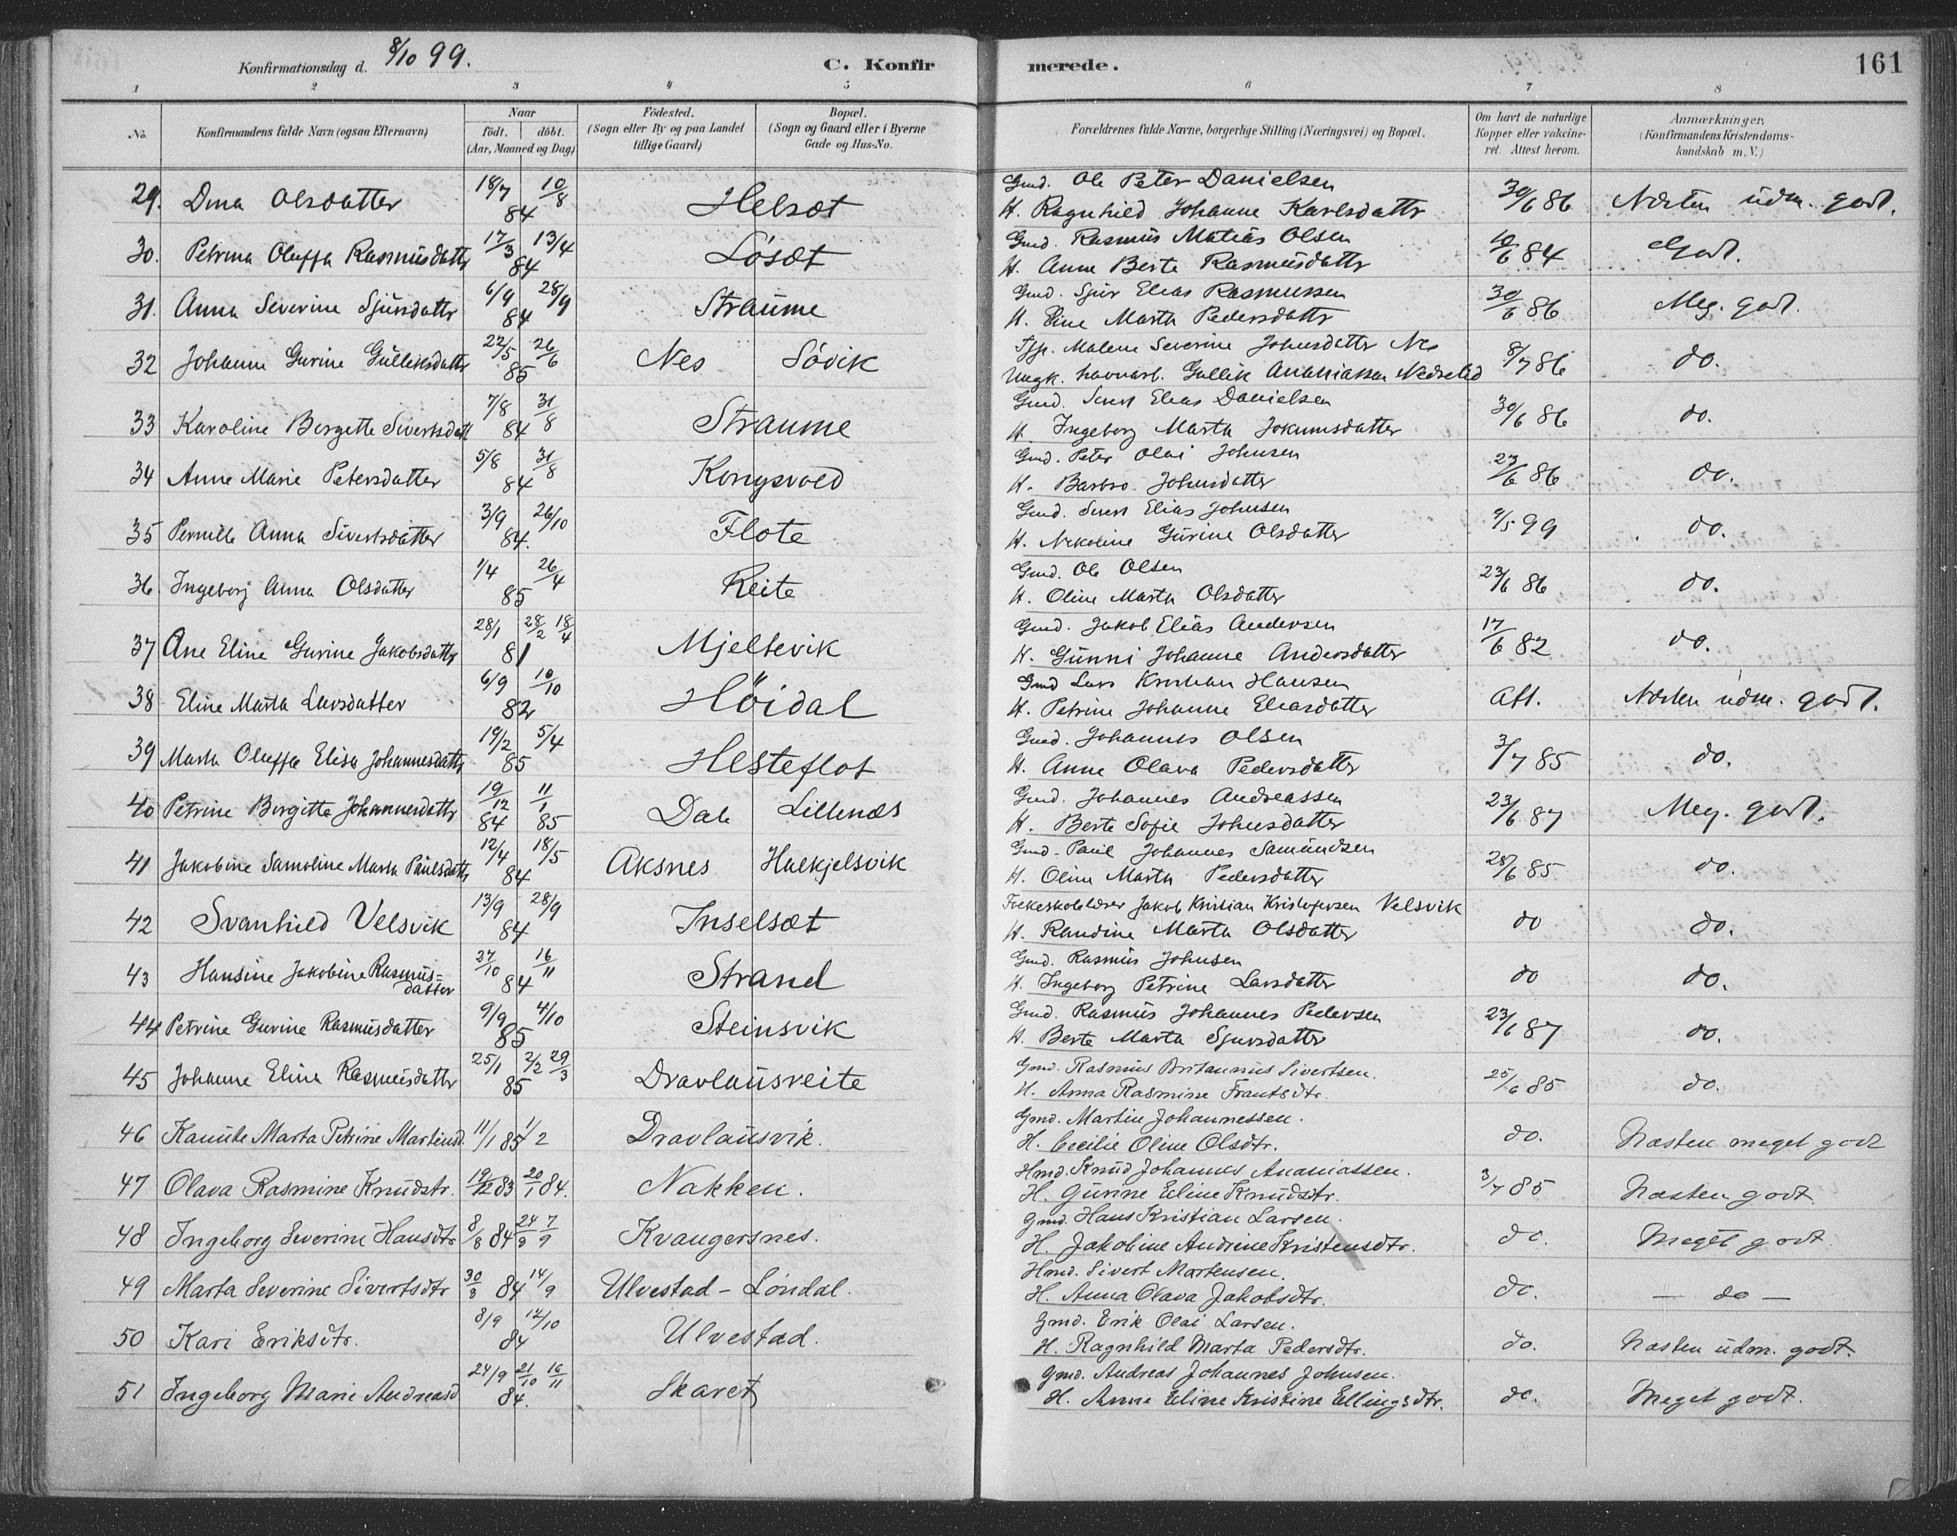 Konfirmationsdag d. 8/10 99. C. Konfir
merede. 161
1 2 3 4 5 6 7 8
No. Konfirmandens fulde Navn (ogsaa Efternavn) Naar født. døbt. (Aar, Maaned og Dag) Fødested. (Sogn eller By og paa Landet tillige Gaard) Bopæl. (Sogn og Gaard eller i Byerne Gade og Hus-No. Forældrenes fulde Navne, borgerlige Stilling (Næringsvei) og Bopæl. Om havt de naturlige Kopper eller vakcineret. Attest herom. Anmærkninger, (Konfirmandens Kristendomskundskab m. V.)
29. Dina Olsdatter 18/7 10/8 84 Helsæt Gmd. Ole Peter Danielsen
H. Ragnhild Johanne Karlsdattr 30/6 86 Næsten udm. godt.
30. Petrina Oluffa Rasmusdattr 17/3 13/4 84 Løsæt Gmd. Rasmus Matias Olsen
H. Anne Berte Rasmusdattr 10/6 84 Godt.
31. Anna Severine Sjursdattr 6/9 28/9 84 Straume Gmd. Sjur Elias Rasmussen
H. Eline Marta Pedersdattr 30/6 86 Meg. godt.
32 Johanne Gurine Gulleiksdattr 22/5 26/6 85 Nes Søvik Malene Severine Johnsdatter Nes
Ungk. Gullik Ananiassen 8/7 86 do.
33 Karoline Bergette Sivertsdatt 7/8 31/8 84 Straume Gmd. Sivert Elias Danielsen
H. Ingeborg Marta Jokumsdatter 30/6 86 do.
34 Anne Marie Petersdatter 5/8 31/8 84 Kongsvold Gmd. Peter Olai Johnsen
H. Barbro Johnsdatter 27/6 86 do.
35 Pernille Anna Sivertsdatter 3/9 26/10 84. Flote Gmd. Sivert Elias Johnsen
H. Nikoline Gurine Olsdatter 9/5 99 do.
36. Ingeborg Anna Olsdatter 1/4 26/4 85 Reite Gmd. Ole Olsen
H. Oline Marta Olsdatter 23/6 86 do.
37 Ane Eline Gurine Jakobsdattr 28/1 28/2 18/4 81 Mjeltevik Gmd. Jakob Elias Andersen
H. Gunni Johanne Andersdatter 17/6 82 do.
38 Eline Marta Larsdatter 6/9 10/10 82 Høidal Gmd Lars Kristian Hansen
H. Petrine Johanne Eliasdatter Att. Næsten udm. godt.
39 Marta Oluffa Elisa Johannesdattr 19/2 5/4 85 Hesteflot Gmd. Johannes Olsen
H. Anne Olava Pedersdatter 3/7 85 do.
40 Petrine Bergitte Johannesdattr 19/12 84 11/1 85 Dale Lillenæs Gmd. Johannes Andreassen
H. Berte Sofie Johnsdatter 23/6 87 Meg. godt.
41 Jakobine Samoline Marta Paulsdattr 12/4 18/5 84 Aksnes Halkjelsvik Gmd. Paul Johannes Samundsen
H. Oline Marta Pedersdatter 28/6 85 do.
42 Svanhild Velsvik 13/9 28/9 84 Inselsæt Folkeskolelærer Jakob Kristian Kristofersen Velsvik
H. Randine Marta Olsdatter do do.
43 Hansine Jakobine Rasmus=
datter 27/10 16/11 84 Strand Gmd. Rasmus Johnsen
H. Ingeborg Petrine Larsdatter do do.
44 Petrine Gurine Rasmusdatter 9/9 4/10 85 Steinsvik Gmd. Rasmus Johannes Pedersen
H. Berte Marta Sjursdatter 23/6 87 do.
45 Johanne Elina Rasmusdatter 25/1 2/2 29/3 85 Dravlausreite Gmd. Rasmus Britannus Sivertsen.
H. Anna Rasmine Frantsdtr. 25/6 85 do.
46 Kanute Marta Petrine Martinsd. 11/1 85 1/2 Dravlausvik. Gmd. Martin Johannessen.
H. Cecilie Oline Olsdtr. do. Næsten meget godt
47 Olava Rasmine Knudsdtr. 19/12 83 20/1 84. Nakken. Hmd. Knud Johannes Ananiassen.
H. Gurine Eline Knudsdtr. 3/7 85 Næsten godt
48 Ingeborg Severine Hansdtr 8/8 84 24/8 7/9 Kvangersnes. Gmd. Hans Kristian Larsen.
H. Jakobine Andrine Kristensdtr. do. Meget godt
49 Marta Severine Sivertsdtr 30/3 84 14/9 Ulvestad - Løndal. Hmd. Sivert Martensen.
H. Anna Olava Jakobsdtr. do. — do —
50 Kari Eriksdtr. 8/9 12/10 84 Ulvestad. Gmd. Erik Olai Larsen.
H. Ragnhild Marta Pedersdtr. do. Næsten udm. godt.
51 Ingeborg Marie Andreasd 24/9 21/10 16/11 84. Skaret Gmd. Andreas Johannes Johnsen.
H. Anne Eline Kristine Ellingsdtr. do. Meget godt.